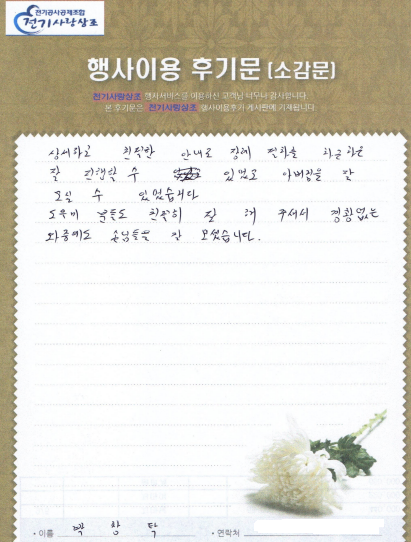 전기공사공제조합
전기사랑상조
행사이용 후기문 (소감문)
전기사랑상조 행사서비스를 이용하신 고객님 너무나 감사합니다.
본 후기문은 전기사랑상조 행사이용후기 게시판에 기재됩니다.
상세하고 친절한 안내로 장례 절차를
잘 진행할 수 있었고 아버님을 잘
모실 수 있었습니다
도우미 분들도 친절히 잘 해 주셔서 경황없는
와중에도 손님들을 잘 모셨습니다.
· 이름 창탁
· 연락처